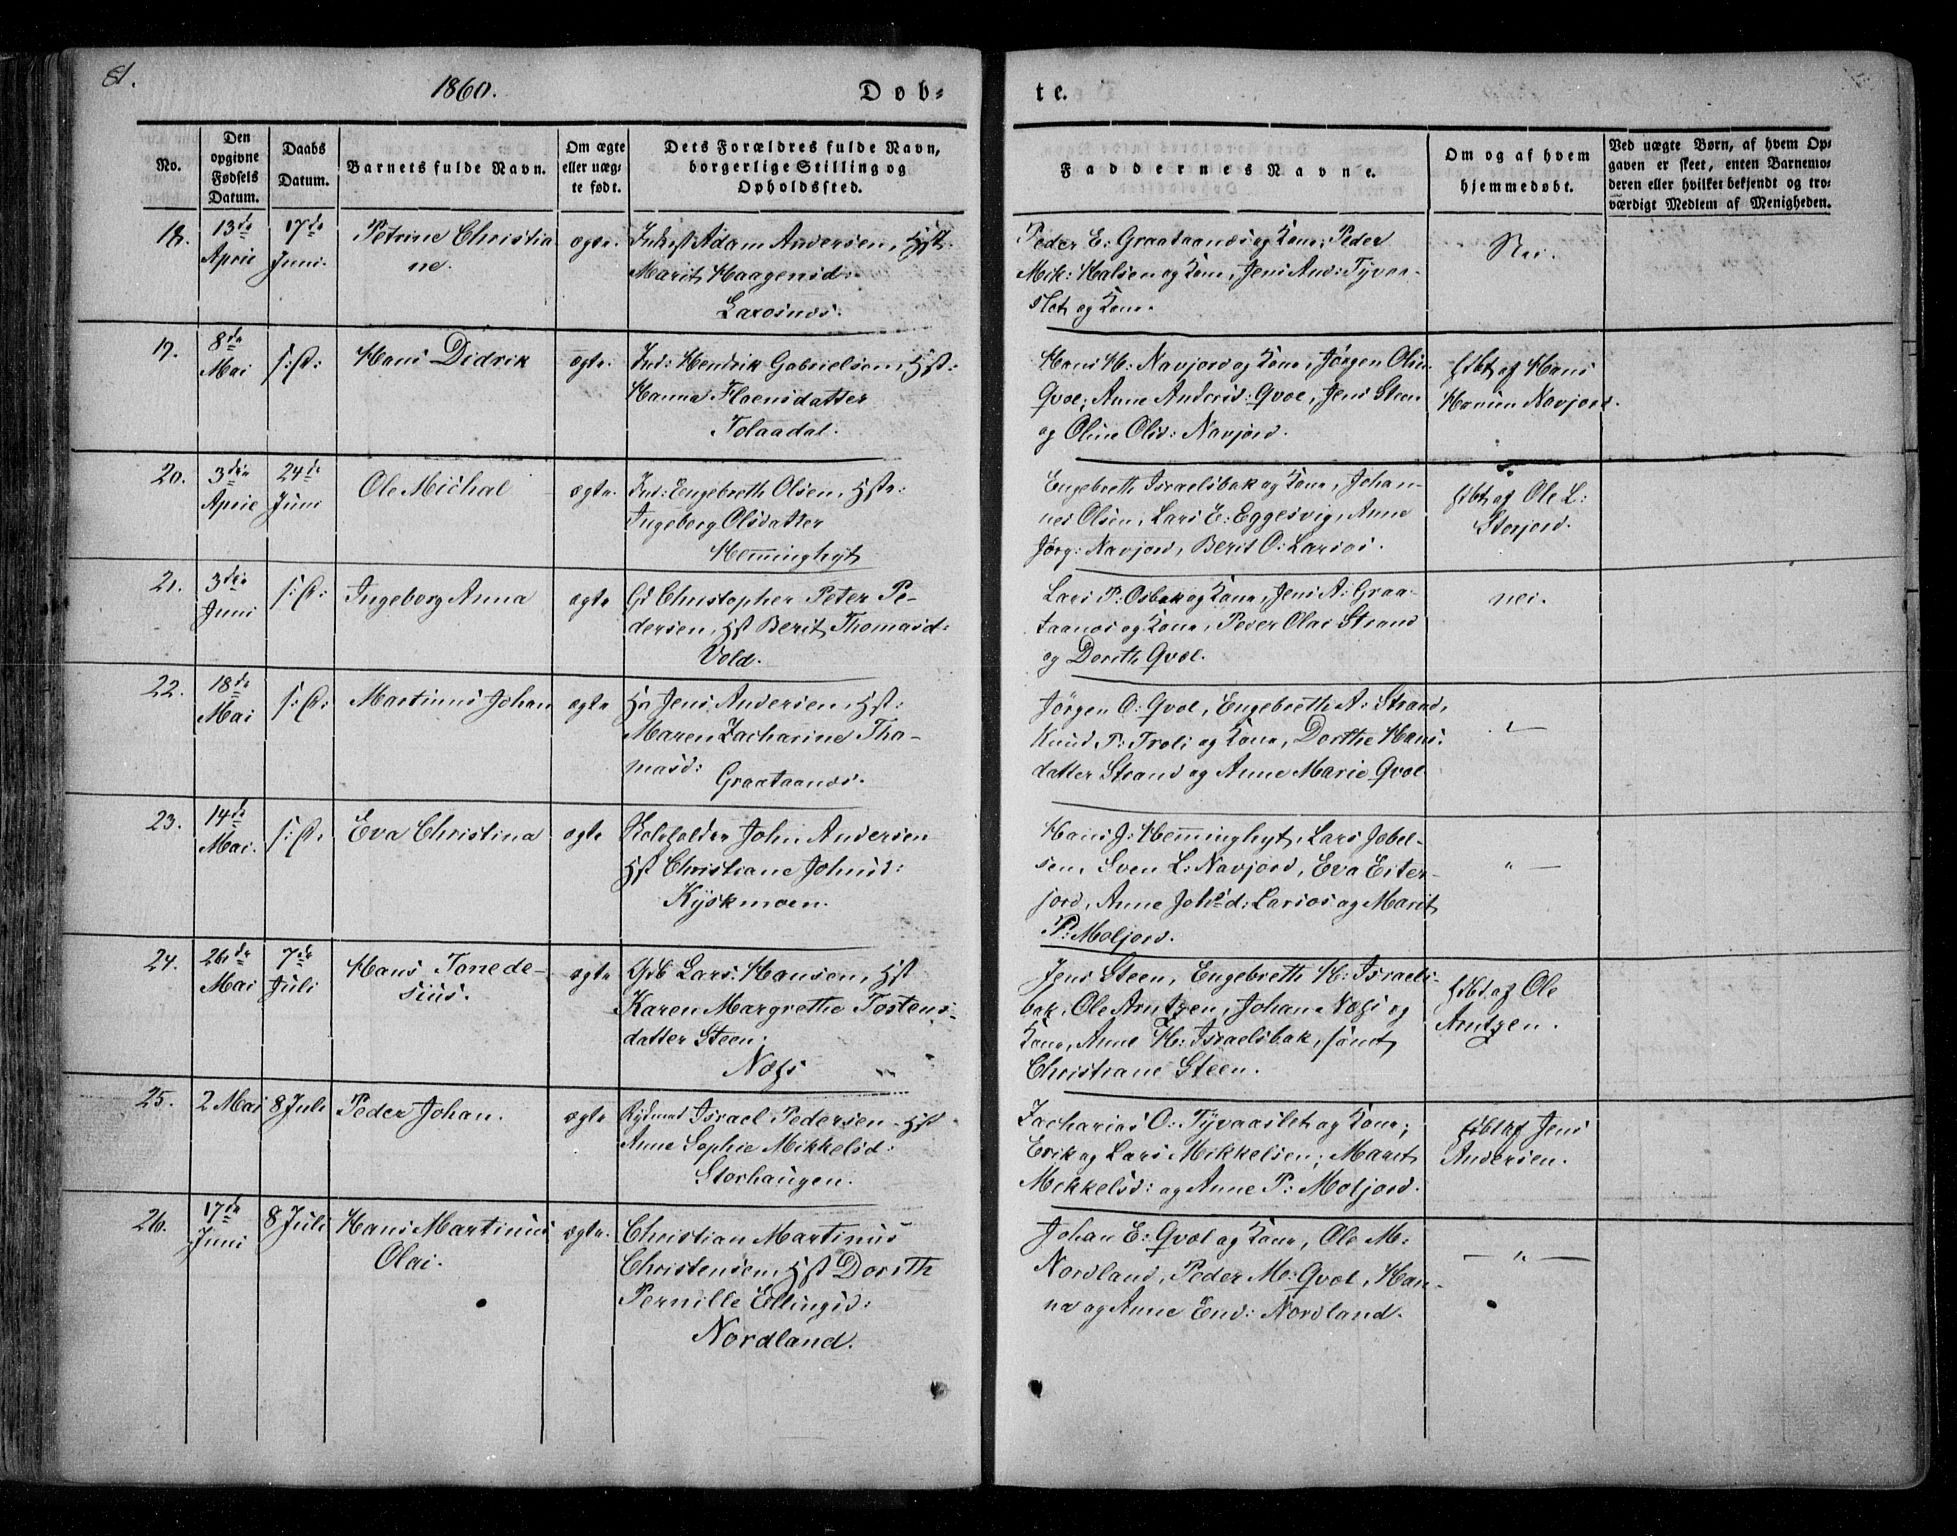 81.
1860.
Døb-
te.
No.
Den opgivne Fødsels Datum.
Daabs Datum.
Barnets fulde Navn.
Om ægte eller uægte født.
Dets Forældres fulde Navn, borgerlige Stilling og Opholdssted.
Faddernes Navne.
Om og af hvem hjemmedøbt.
Ved uægte Børn, af hvem Opgaven er skeet, enten Barnemoderen eller hvilket bekjendt og troværdigt Medlem af Menigheden.
18. 13de April 17de Juni. Petrine Christia
ne. ægte. Adam Andersen, Hst.
Marit Haagensd:
Larosnæs.
Peder E: Graataanæs og Kone; Peder
Mik: Halsen og Kone, Jens And: Tyvaa-
slet og Kone.
Nei.
19. 8de Mai s:D: Hans Didrik ægte. Ind: Hendrik Gabrielsen, Hst:
Hanna Floensdatter
Tolaadal.
Hans H: Navjord og Kone, Jørgen Olsn
Qvæl; Anne Andersd: Qvæl, Jens Steen
og Oline Olsd: Navjord.
hdbt af Hans
Hansen Navjord.
20. 3die April 24de Juni Ole Michal ægte. Ind: Engebreth Olsen, Hst:
Ingeborg Olsdatter
Hemminghyt
Engebreth Israelsbak og Kone, Johan-
nes Olsen, Lars E: Eggesvig, Anne
Jørg: Navjord, Berit O: Larsos.
hdbt af Ole L:
Storjord.
21. 3die Juni s:D: Ingeborg Anna ægte Gd Christopher Peter Pe-
dersen, Hst Berit Thomasd:
Vold.
Lars P: Osbak og Kone, Jens A: Graa-
taanæs og Kone, Peder Olai Strand
og Dorith Qvæl.
nei.
22. 18de Mai s:D: Martinus Johan ægte Jens Andersen, Hst:
Maren Zacharine Tho-
masd:
Graataanæs.
Jørgen O: Qvæl, Engebreth A: Strand,
Knud P: Troli og Kone, Dorthe Hans
datter Strand og Anne Marie Qvæl
"
23. 14de Mai. s:D: Eva Christina ægte John Andersen
Hst Christiane Johnsd:
Kyskmoen.
Hans J: Hemminghyt, Lars Jobel-
sen, Sven L: Navjord, Eva Eiter-
jord, Anne Johsd: Larsos og Marit
P: Moljord.
" —
24. 26de Mai 7de Juli Hans Tonede-
sius. ægte Gdb Lars Hansen, Hst
Karen Margrethe Tostens-
datter Steen.
Næss
Jens Steen, Engebreth H: Israels-
bak, Ole Arntzen, Johan Næss og
Kone, Anne H: Israelsbak, samt
Christiane Steen.
hdbt af Ole
Arntzen.
25. 2 Mai 8 Juli Peder Johan. ægte Rydmd Israel Pedersen Hst
Anne Sophie Mikkelsd:
Storhaugen.
Zacharias O: Tyvaaslet og Kone;
Erik og Lars Mikkelsen; Maret
Mikkelsd: og Anne P: Moljord.
hdbt af Jens
Andersen.
26. 17de Juni 8 Juli Hans Martinus
Olai. ægte. Christian Martinus
Christensen, Hst Dorith
Pernille Ellingsd:
Nordland.
Johan E: Qvæl og Kone, Ole M:
Nordland, Peder M: Qvæl, Han-
na og Anne End: Nordland.
— " —